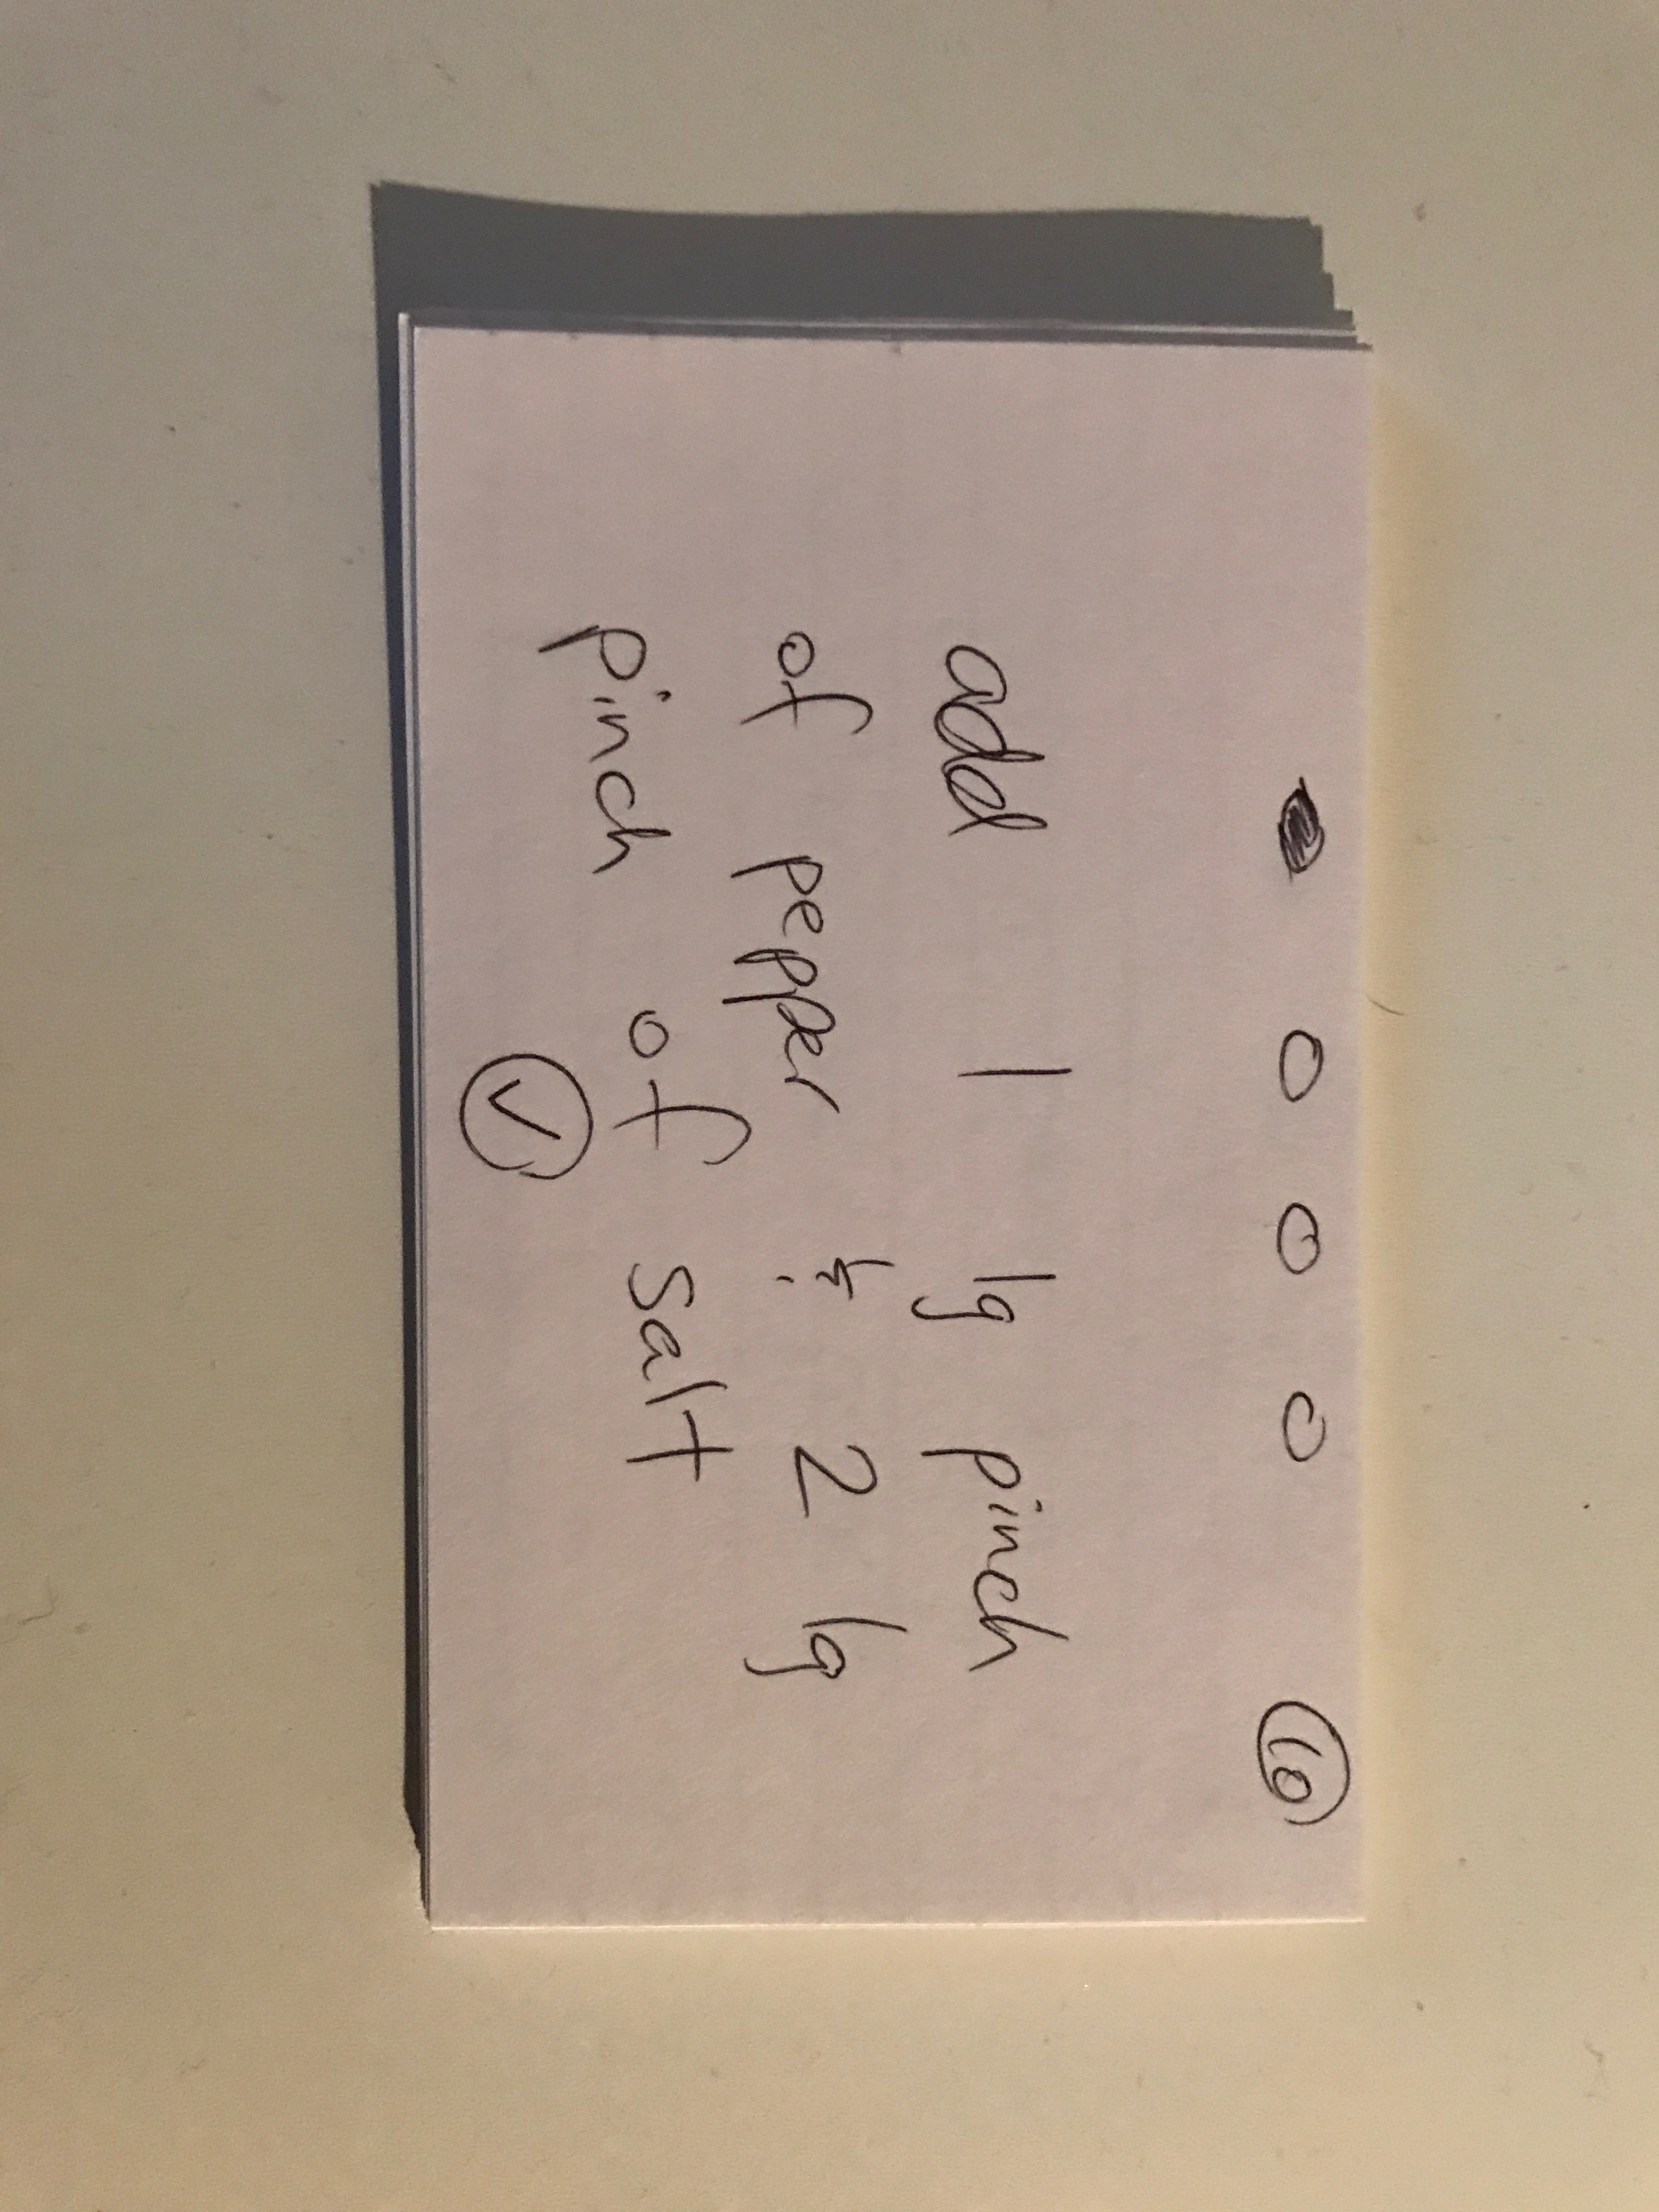 ● O O O 10
add 1 lg pinch
of pepper & 2 lg
pinch of salt
V